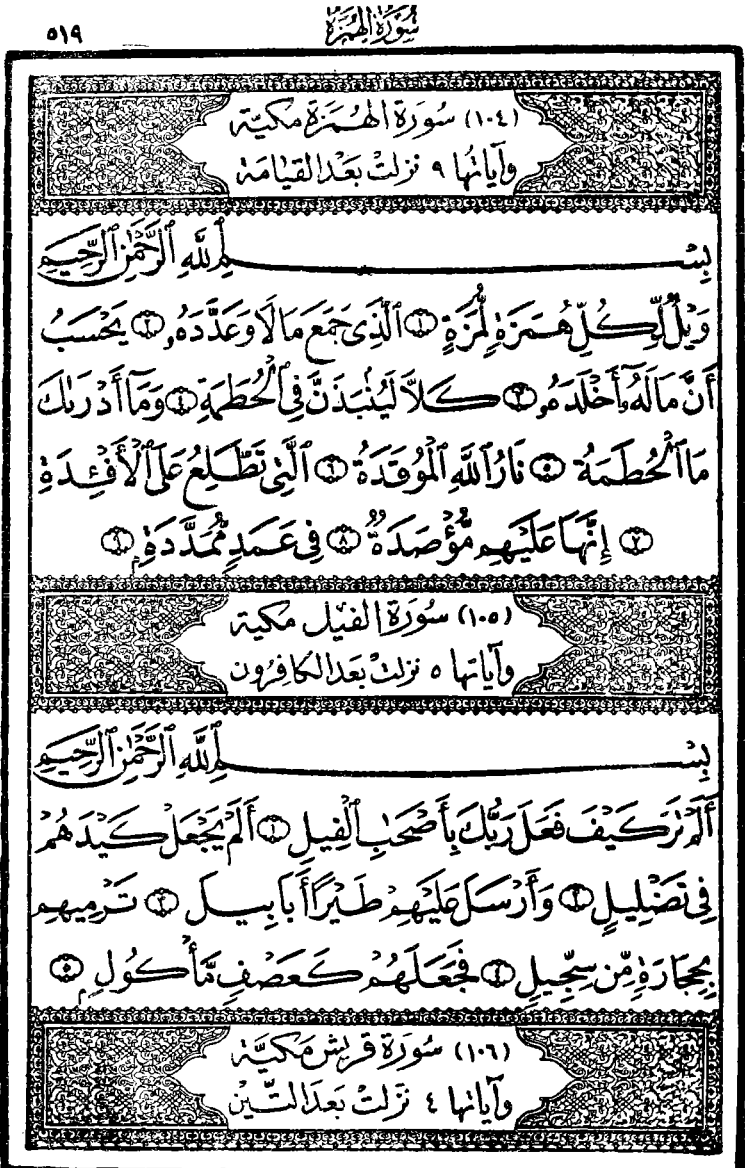 ٥١٩
سُورَةُ الهُمَزَةِ
(١٠٤) سُورَةُ الهُمَزَةِ مَكِيَّة
وَآيَاتُهَا ٩ نَزَلَتْ بَعْدَ القِيَامَةِ
بِسْمِ ٱللَّهِ ٱلرَّحْمَٰنِ ٱلرَّحِيمِ
وَيْلٌ لِّكُلِّ هُمَزَةٍ لُّمَزَةٍ ١ ٱلَّذِى جَمَعَ مَالًا وَعَدَّدَهُۥ ٢ يَحْسَبُ
أَنَّ مَالَهُۥٓ أَخْلَدَهُۥ ٣ كَلَّا لَيُنۢبَذَنَّ فِى ٱلْحُطَمَةِ ٤ وَمَآ أَدْرَىٰكَ
مَا ٱلْحُطَمَةُ ٥ نَارُ ٱللَّهِ ٱلْمُوقَدَةُ ٦ ٱلَّتِى تَطَّلِعُ عَلَى ٱلْأَفْـِٔدَةِ
٧ إِنَّهَا عَلَيْهِم مُّؤْصَدَةٌ ٨ فِى عَمَدٍ مُّمَدَّدَةٍۭ ٩
(١٠٥) سُورَةُ الفِيْلِ مَكيَة
وَآيَاتهَا ٥ نَزَلَتْ بَعْدَ الكَافِرُون
بِسْمِ ٱللَّهِ ٱلرَّحْمَٰنِ ٱلرَّحِيمِ
أَلَمْ تَرَ كَيْفَ فَعَلَ رَبُّكَ بِأَصْحَٰبِ ٱلْفِيلِ ١ أَلَمْ يَجْعَلْ كَيْدَهُمْ
فِى تَضْلِيلٍ ٢ وَأَرْسَلَ عَلَيْهِمْ طَيْرًا أَبَابِيلَ ٣ تَرْمِيهِم
بِحِجَارَةٍ مِّن سِجِّيلٍ ٤ فَجَعَلَهُمْ كَعَصْفٍ مَّأْكُولٍۭ ٥
(١٠٦) سُورَة قُرَيش مَكيَّة
وَآيَاتهَا ٤ نَزَلَتْ بَعْدَ التِّيْن